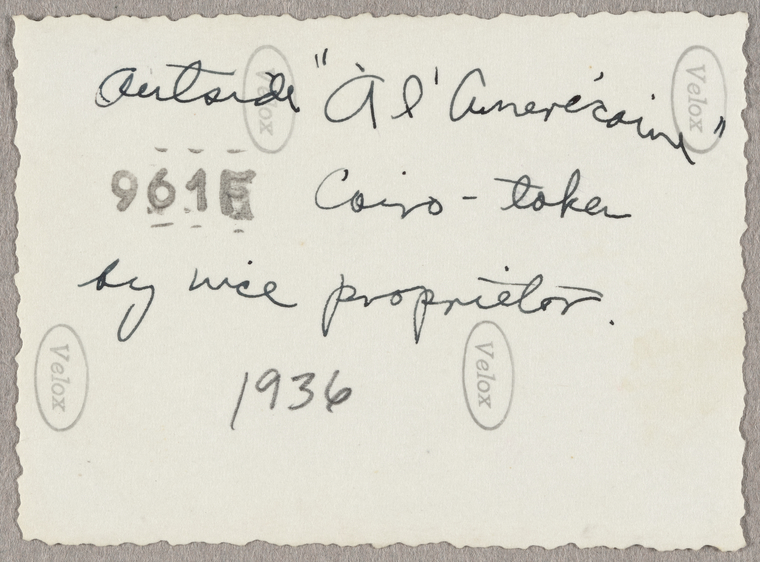 outside "À l'Américaine"
Cairo - taken
by nice proprietor.
1936
961
Velox
Velox
Velox
Velox